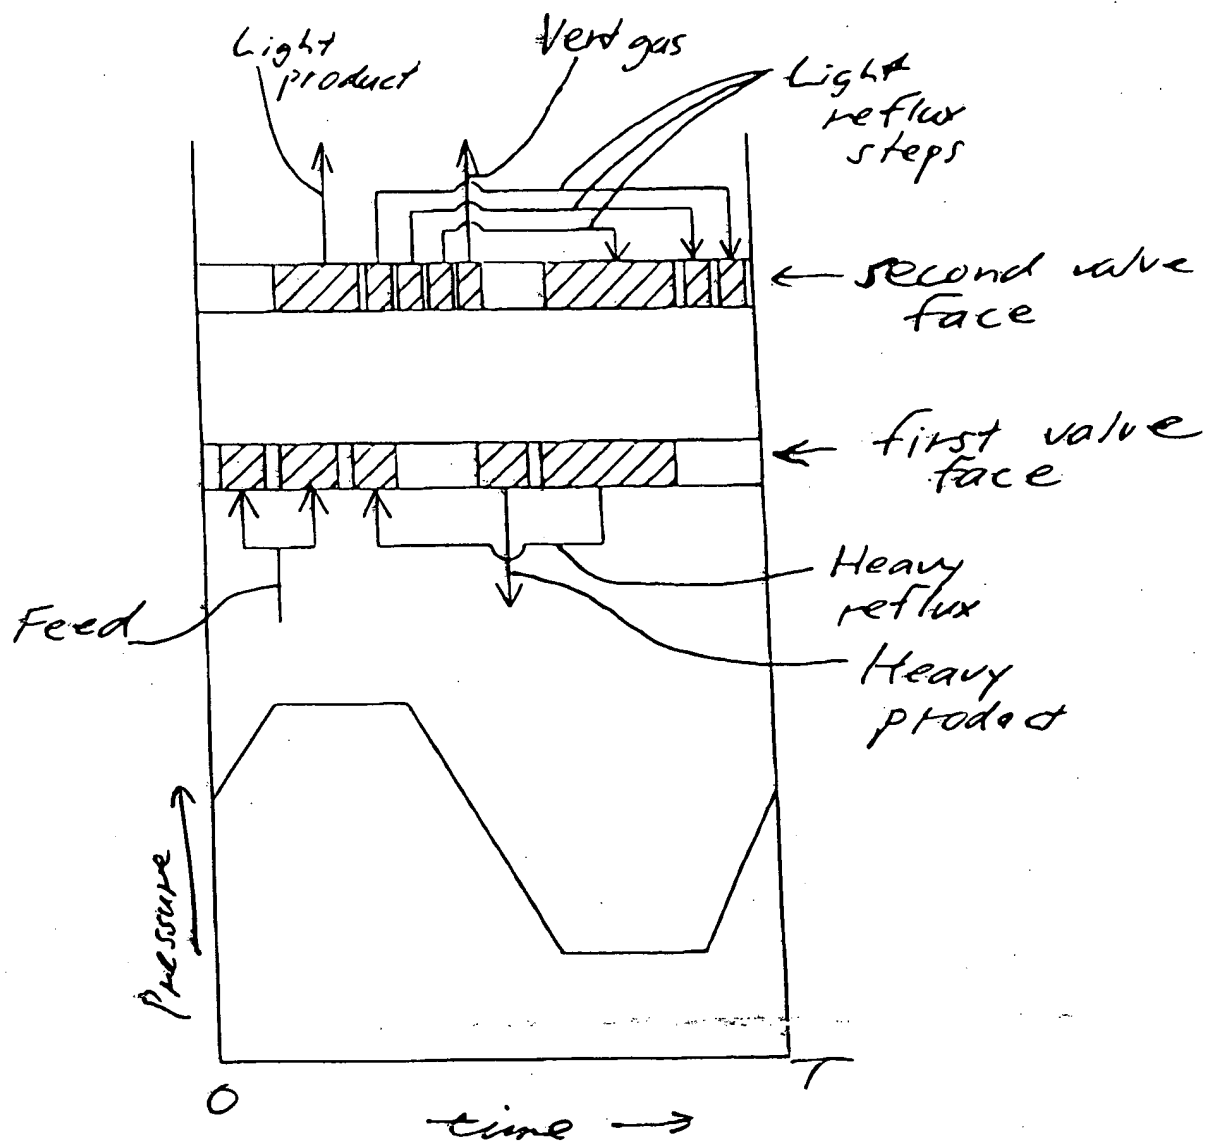 Light
product
Vent gas
Light
reflux
steps
second valve
face
first valve
face
Feed
Heavy
reflux
Heavy
product
Pressure
0
T
time